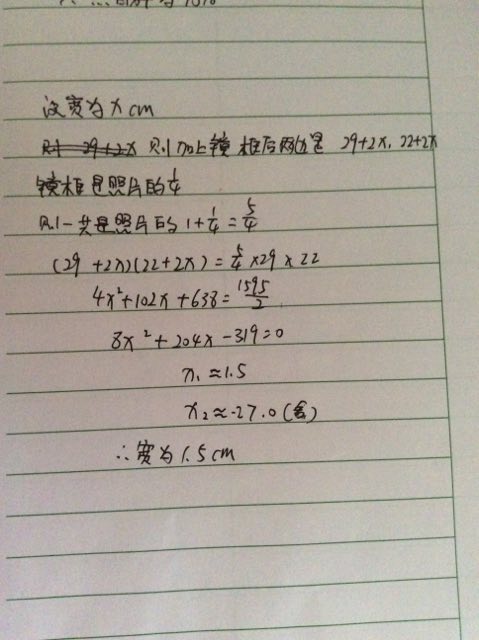 设宽为xcm
则加上镜框后两边是 29+2x, 22+2x
镜框是照片的1/4
则一共是照片的1+1/4=5/4
(29+2x)(22+2x)=5/4×29×22
4x²+102x+638=1595/2
8x²+204x-319=0
x₁≈1.5
x₂≈-27.0(舍)
∴宽为1.5cm